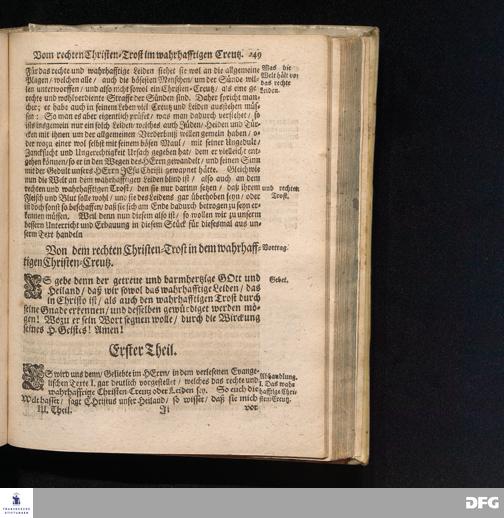 Vom rechten Christen-Trost im wahrhafftigen Creutz. 249
Für das rechte und wahrhafftige Leiden siehet sie wol an die allgemeine
Plagen / welchen alle / auch die bösesten Menschen / um der Sünde wil-
len unterworffen / und also nicht sowol ein Christen-Creutz / als eine ge-
rechte und wohlverdiente Straffe der Sünden sind. Daher spricht man-
cher; er habe auch in seinem Leben viel Creutz und Leiden ausstehen müs-
sen: So man es aber eigentlich prüfet / was man dadurch verstehet / so
ists insgemein nur ein solch Leiden / welches auch Jüden / Heiden und Tür-
cken mit ihnen um der allgemeinen Verderbniß willen gemein haben / o-
der wozu einer wol selbst mit seinem bösen Maul / mit seiner Ungedult /
Zancksucht und Ungerechtigkeit Ursach gegeben hat / dem er vielleicht ent-
gehen können / so er in den Wegen des HErrn gewandelt / und seinen Sinn
mit der Gedult unsers HErrn JEsu Christi gewapnet hätte. Gleichwie
nun die Welt an dem wahrhafftigen Leiden blind ist / also auch an dem
rechten und wahrhafftigen Trost / den sie nur darinn setzen / daß ihrem
Fleisch und Blut solle wohl / und sie des Leidens gar überhoben seyn / oder
ist doch sonst so beschaffen / daß sie sich am Ende dadurch betrogen zu seyn er-
kennen müssen. Weil denn nun diesem also ist / so wollen wir zu unserm
bessern Unterricht und Erbauung in diesem Stück für diesesmal aus un-
serm Text handeln
Was die
Welt hält vor
das rechte
Leiden.
und rechten
Trost.
Von dem rechten Christen-Trost in dem wahrhaff-
tigen Christen-Creutz.
Vortrag.
ES gebe denn der getreue und barmhertzige GOtt und
Heiland / daß wir sowol das wahrhafftige Leiden / das
in Christo ist / als auch den wahrhafftigen Trost durch
seine Gnade erkennen / und desselben gewürdiget werden mö-
gen! Wozu er sein Wort segnen wolle / durch die Wirckung
seines H. Geistes! Amen!
Gebet.
Erster Theil.
ES wird uns denn / Geliebte im HErrn / in dem verlesenen Evange-
lischen Texte I. gar deutlich vorgestellet / welches das rechte und
wahrhafftige Christen Creutz oder Leiden sey. So euch die
Welt hasset / sagt Christus unser Heiland / so wisset / daß sie mich
Abhandlung.
I. Das wahr
hafftige Chri-
sten-Creutz.
III. Theil. Ji vor
FRANCKESCHE
STIFTUNGEN
DFG